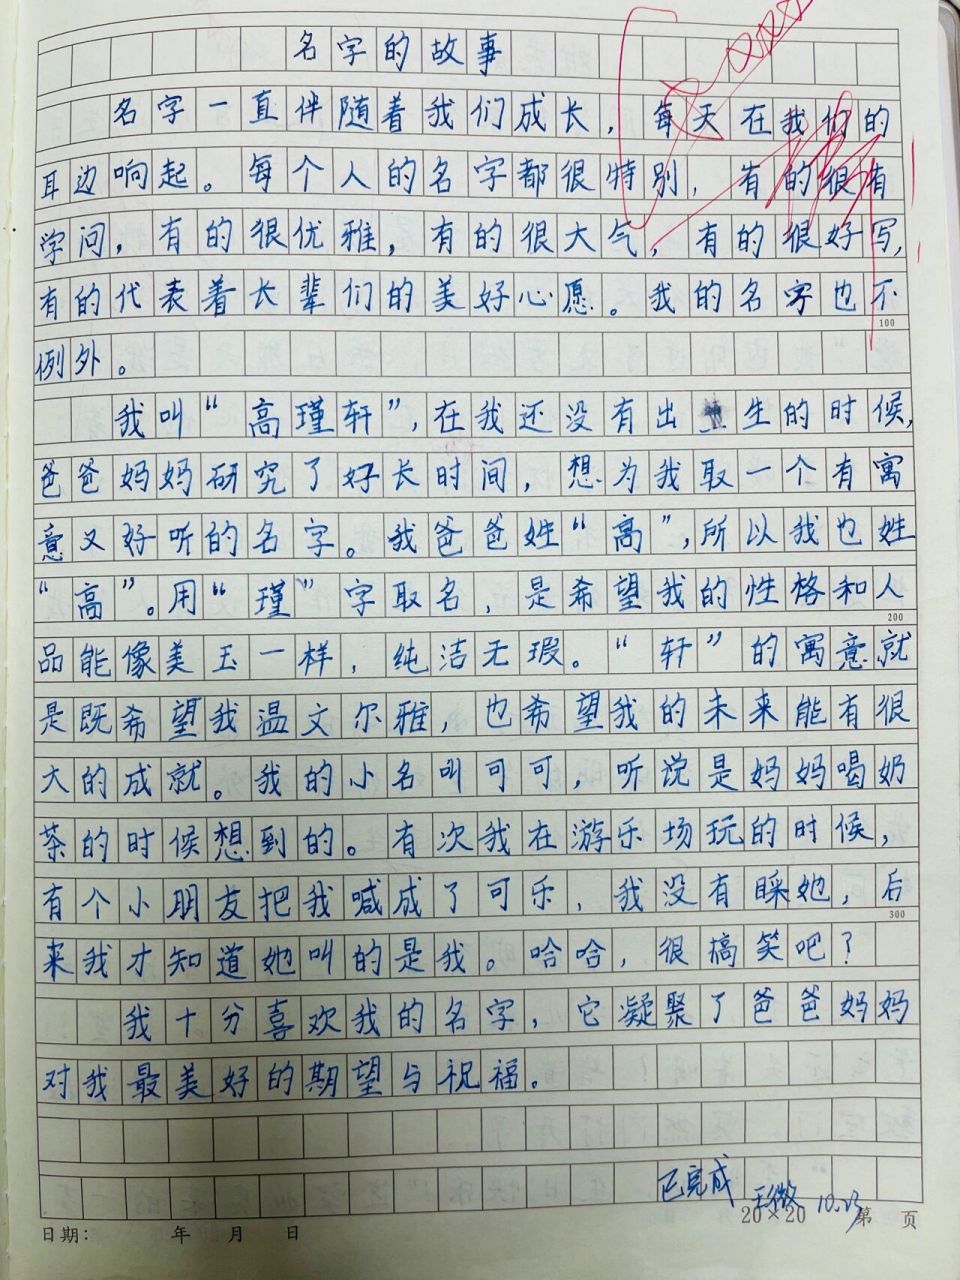 名字的故事
名字一直伴随着我们成长，每天在我们的
耳边响起。每个人的名字都很特别，有的很有
学问，有的很优雅，有的很大气，有的很好写，
有的代表着长辈们的美好心愿。我的名字也不
100
例外。
我叫“高瑾轩”，在我还没有出生的时候，
爸爸妈妈研究了好长时间，想为我取一个有寓
意又好听的名字。我爸爸姓“高”，所以我也姓
“高”。用“瑾”字取名，是希望我的性格和人
200
品能像美玉一样，纯洁无瑕。“轩”的寓意就
是既希望我温文尔雅，也希望我的未来能有很
大的成就。我的小名叫可可，听说是妈妈喝奶
茶的时候想到的。有次我在游乐场玩的时候，
有个小朋友把我喊成了可乐，我没有睬她，后
300
来我才知道她叫的是我。哈哈，很搞笑吧？
我十分喜欢我的名字，它凝聚了爸爸妈妈
对我最美好的期望与祝福。
已完成
日期： 年 月 日 20×20 第 页